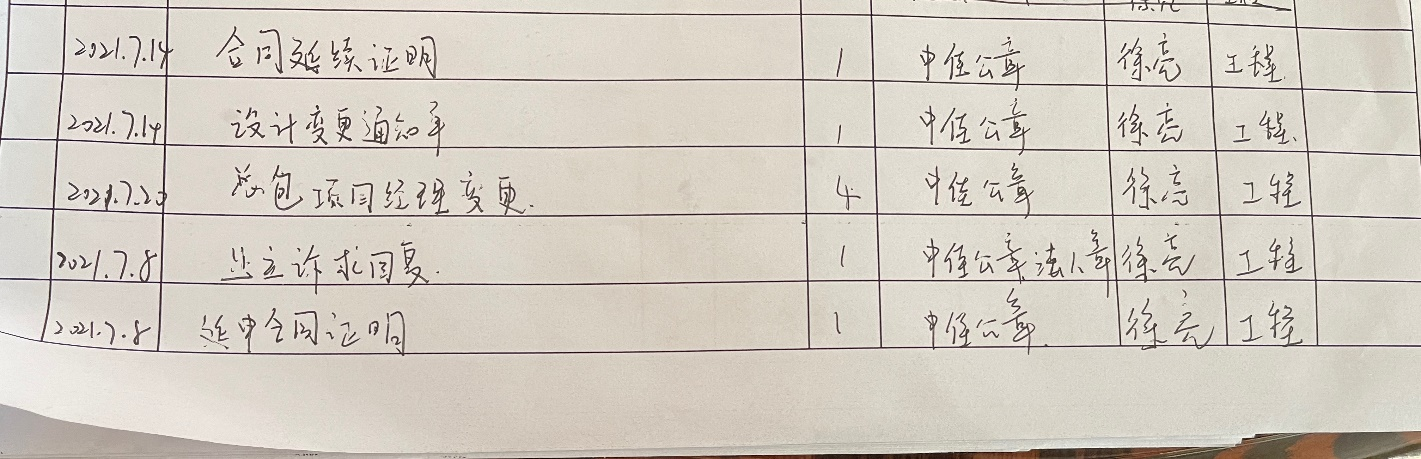 2021.7.14 合同延续证明 1 中佳公章 徐亮 工程
2021.7.14 设计变更通知单 1 中佳公章 徐亮 工程.
2021.7.20 总包项目经理变更. 4 中佳公章 徐亮 工程
2021.7.8 业主诉求回复. 1 中佳公章法人章 徐亮 工程
2021.7.8 延申合同证明 1 中佳公章. 徐亮 工程